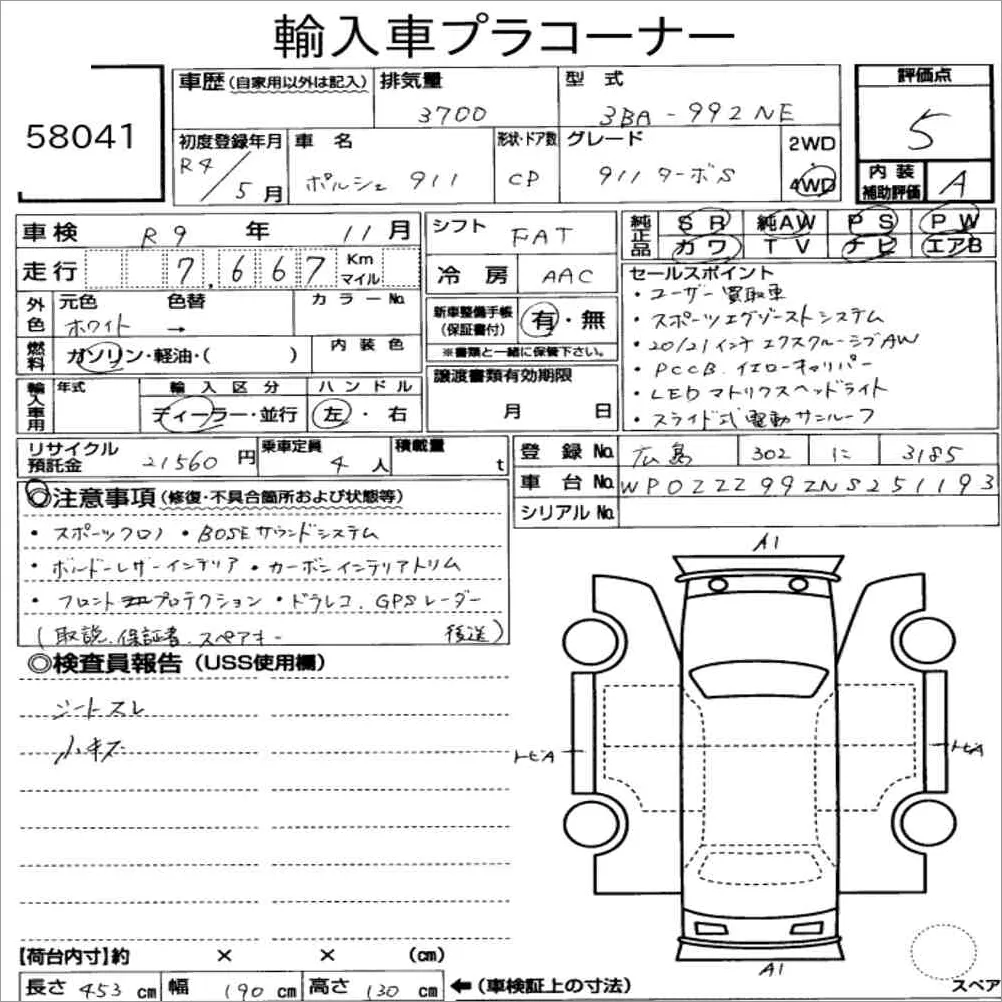 輸入車プラコーナー
58041
車歴(自家用以外は記入) 排気量 3700 型式 3BA-992NE 評価点 5
初度登録年月 R4/5月 車名 ポルシェ 911 形状・ドア数 CP グレード 911 ターボS 2WD・4WD 内装補助評価 A
車検 R9年 11月 シフト FAT 純正品 SR 純AW PS PW
カワ TV ナビ エアB
走行 7,667 Km マイル 冷房 AAC
外色 元色 ホワイト 色替 → カラーNo. 新車整備手帳(保証書付) 有・無
※書類と一緒に保管下さい。
燃料 ガソリン・軽油・( ) 内装色
輸入車用 年式 輸入区分 ディーラー・並行 ハンドル 左・右 譲渡書類有効期限 月 日
セールスポイント
・ユーザー買取車
・スポーツエグゾーストシステム
・20/21インチ エクスクルーシブAW
・PCCB.イエローキャリパー
・LEDマトリクスヘッドライト
・スライド式電動サンルーフ
リサイクル預託金 21560円 乗車定員 4人 積載量 t
登録No. 広島 302 に 3185
車台No. WP0ZZZ99ZNS251193
シリアルNo.
◎注意事項(修復・不具合箇所および状態等)
・スポーツクロノ ・BOSEサウンドシステム
・ボルドーレザーインテリア ・カーボンインテリアトリム
・フロント プロテクション ・ドラレコ.GPSレーダー
(取説.保証書.スペアキー 後送)
◎検査員報告(USS使用欄)
シートスレ
小キズ
A1
トビA トビA
A1
スペア
【荷台内寸】約 × × (cm)
長さ 453 cm 幅 190 cm 高さ 130 cm ←(車検証上の寸法)